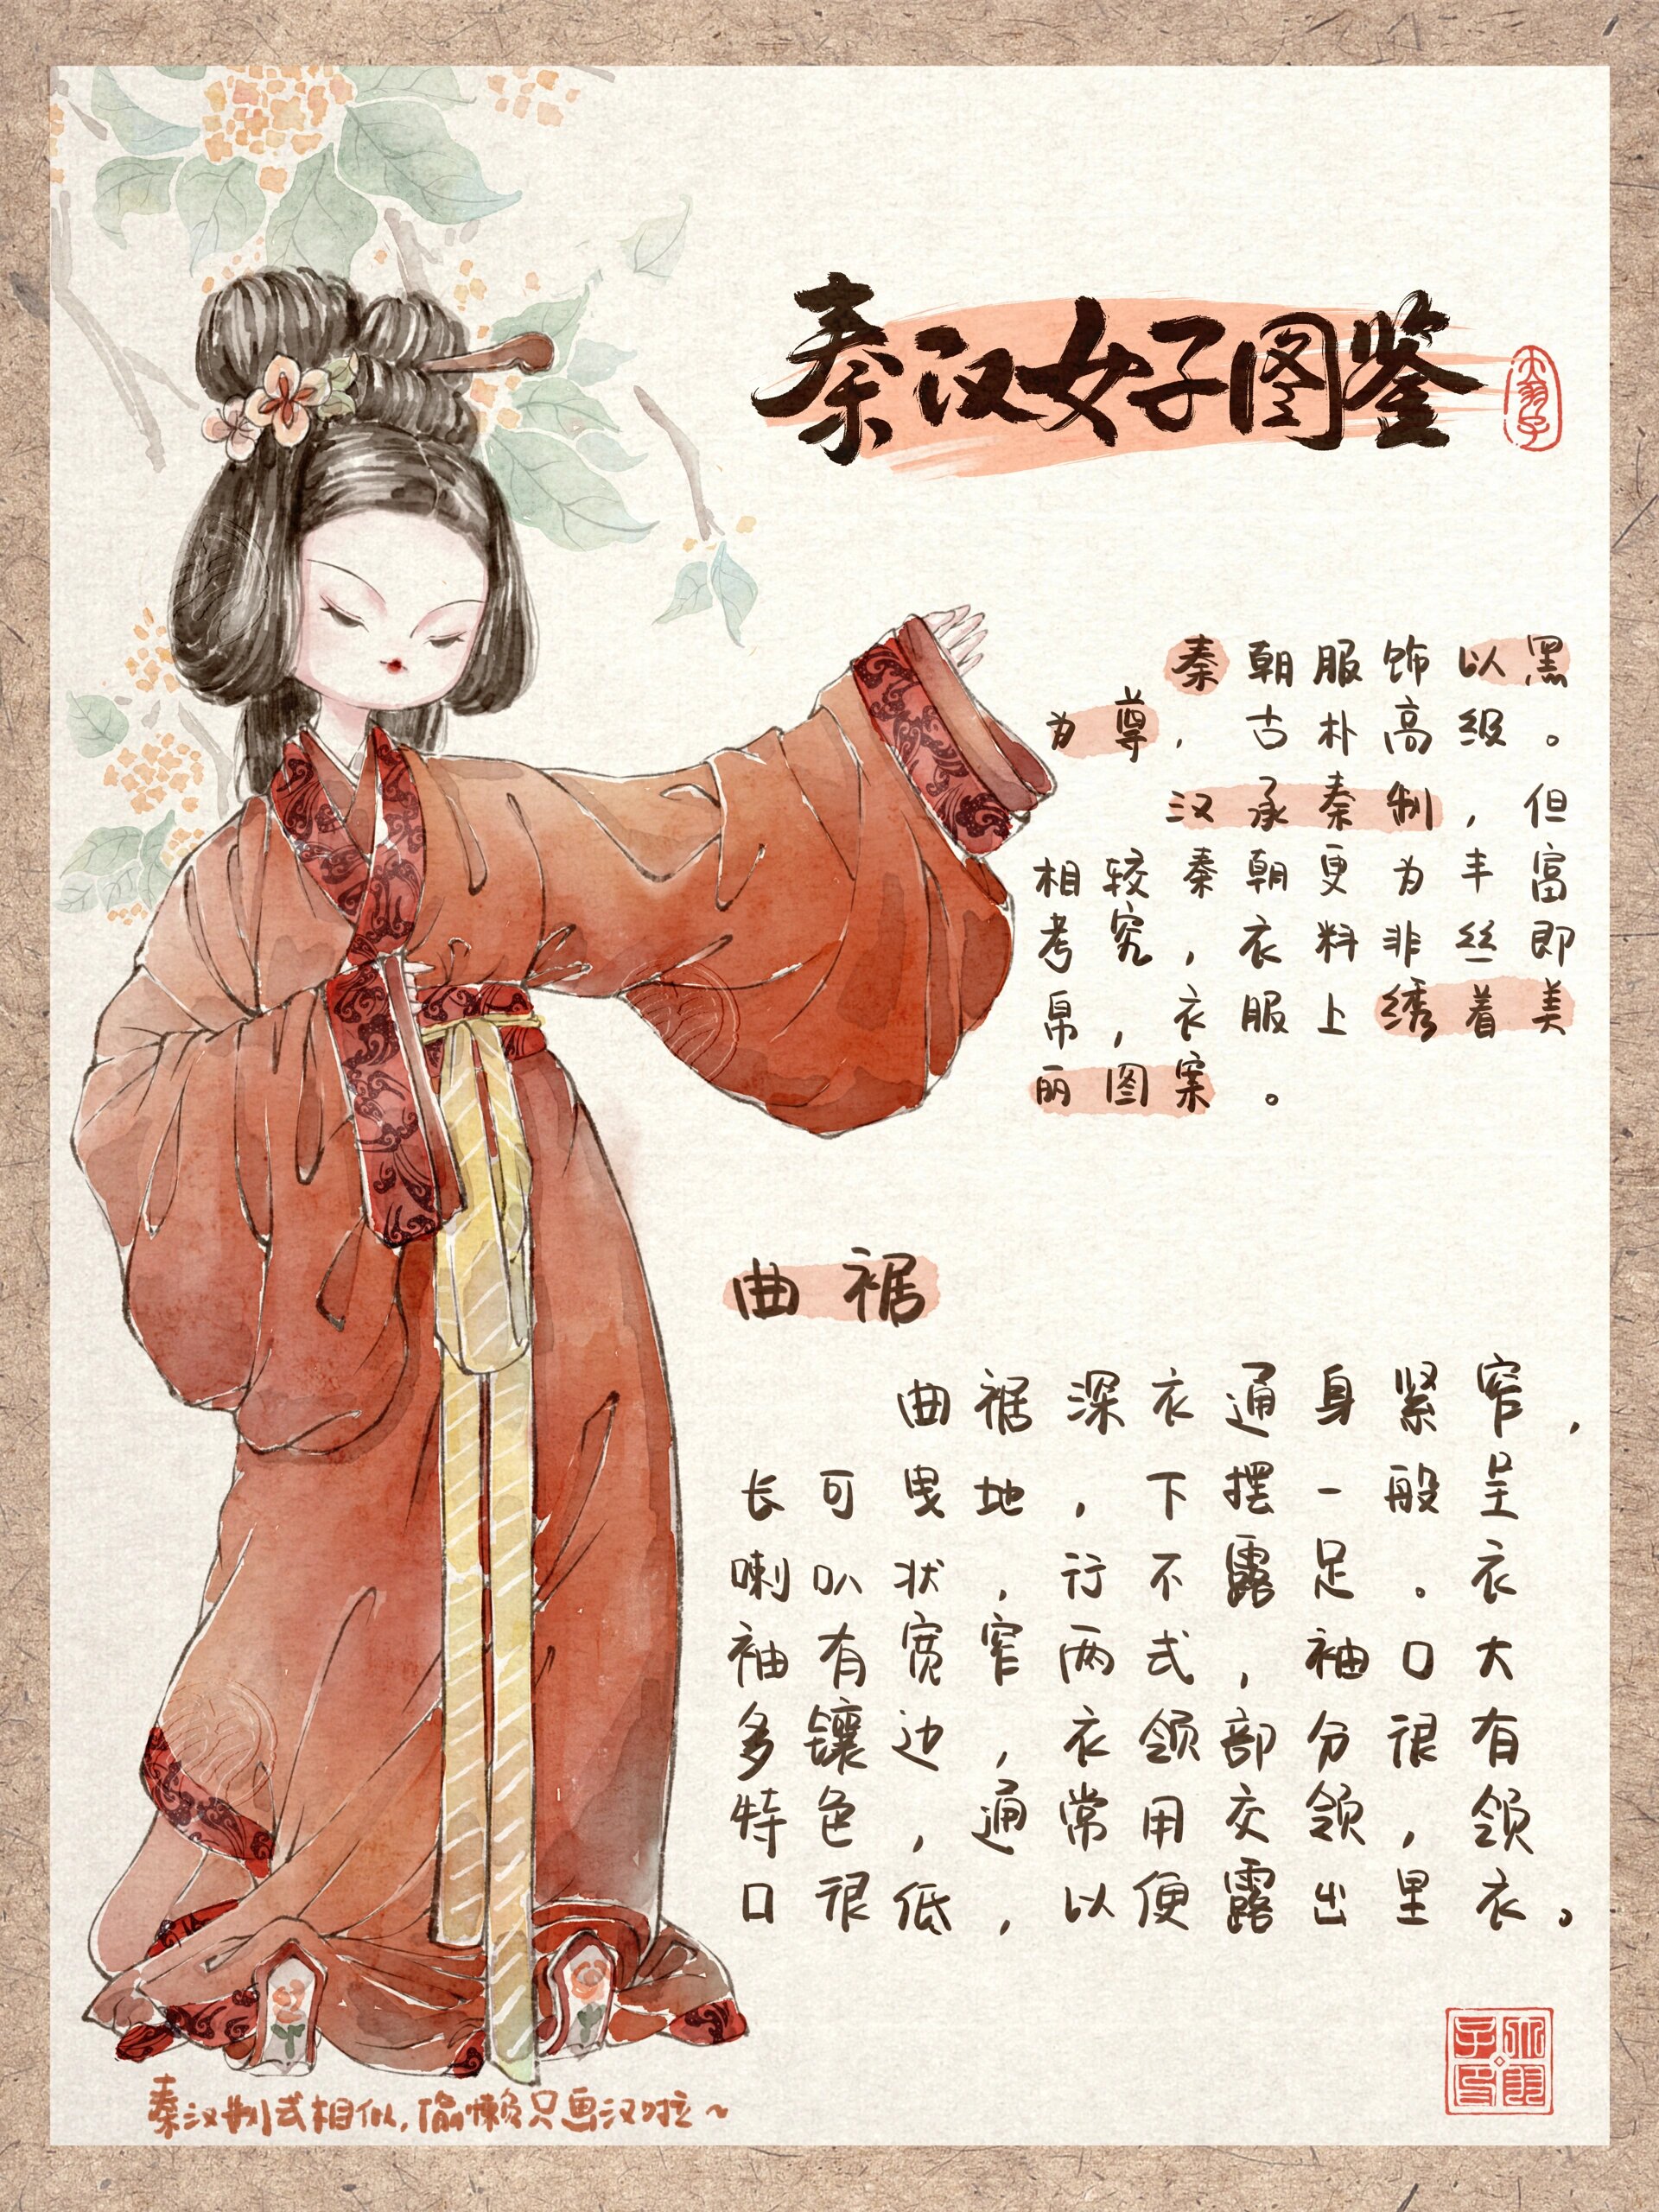 秦汉女子图鉴
秦朝服饰以黑
为尊，古朴高级。
汉承秦制，但
相较秦朝更为丰富
考究，衣料非丝即
帛，衣服上绣着美
丽图案。
曲裾
曲裾深衣通身紧窄，
长可曳地，下摆一般呈
喇叭状，行不露足。衣
袖有宽窄两式，袖口大
多镶边，衣领部分很有
特色，通常用交领，领
口很低，以便露出里衣。
秦汉制式相似，偷懒只画汉啦~